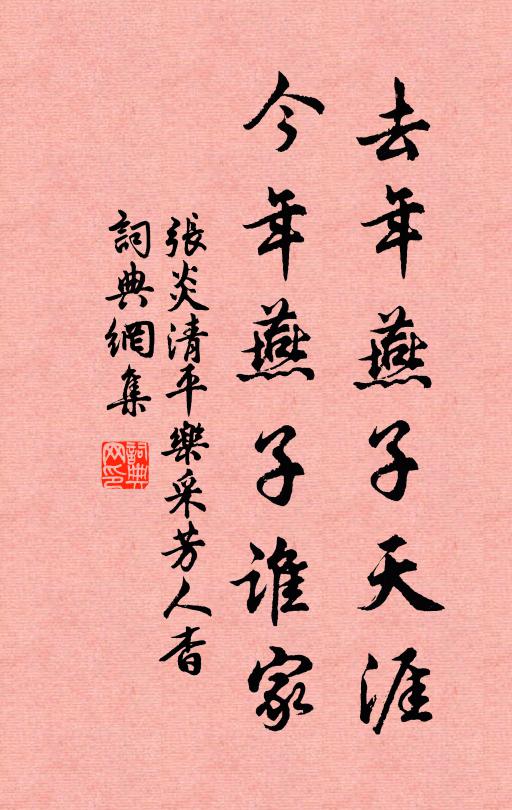 去年燕子天涯
今年燕子誰家
張炎清平樂采芳人杳
詞典網集
詞典網印